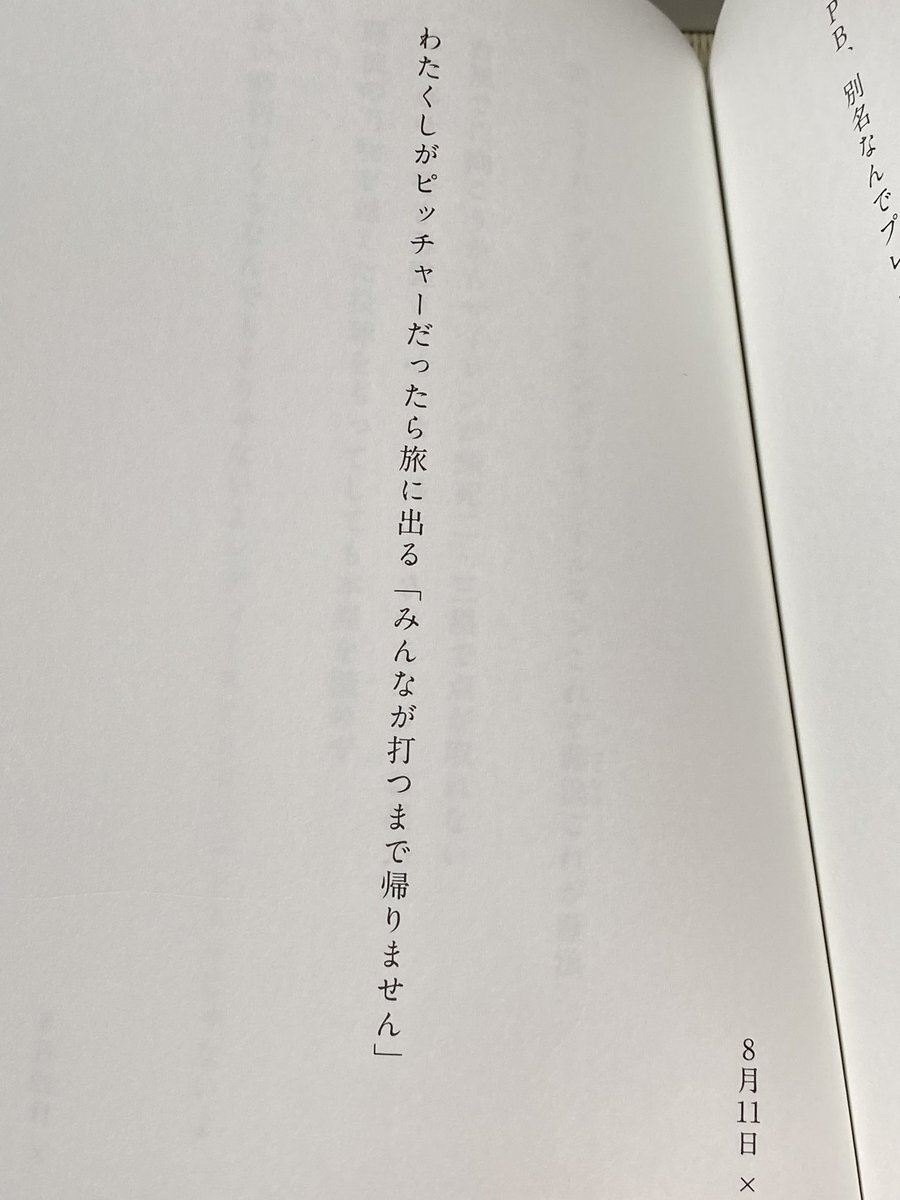 PB、別名なんでプレ
8月11日 ×
わたくしがピッチャーだったら旅に出る「みんなが打つまで帰りません」